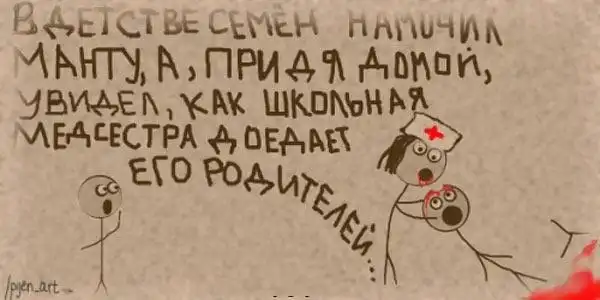 В ДЕТСТВЕ СЕМЁН НАМОЧИЛ
МАНТУ, А, ПРИДЯ ДОМОЙ,
УВИДЕЛ, КАК ШКОЛЬНАЯ
МЕДСЕСТРА ДОЕДАЕТ
ЕГО РОДИТЕЛЕЙ...
/pgen_art
...